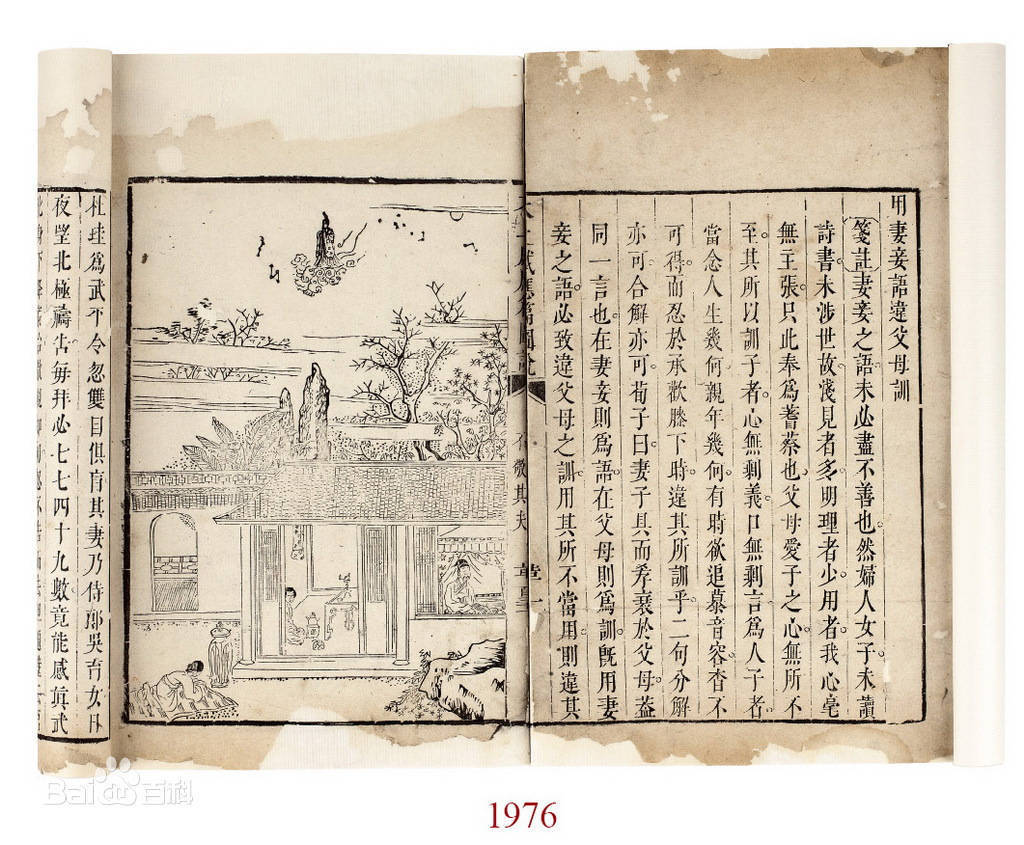 用妻妾語違父母訓
箋註妻妾之語未必盡不善也然婦人女子未讀
詩書未涉世故淺見者多明理者少用者我心毫
無主張只此奉爲蓍蔡也父母愛子之心無所不
至其所以訓子者心無剩義口無剩言爲人子者
當念人生幾何親年幾何有時欲追慕音容杳不
可得而忍於承歡膝下時違其所訓乎二句分解
亦可合解亦可荀子曰妻子具而孝衰於父母蓋
同一言也在妻妾則爲語在父母則爲訓旣用妻
妾之語必致違父母之訓用其所不當用則違其
感應篇圖說
杜珪爲武平令忽雙目俱肓其妻乃侍郎吳育女日
夜望北極禱告每拜必七七四十九數竟能感眞武
Bai 百科
1976